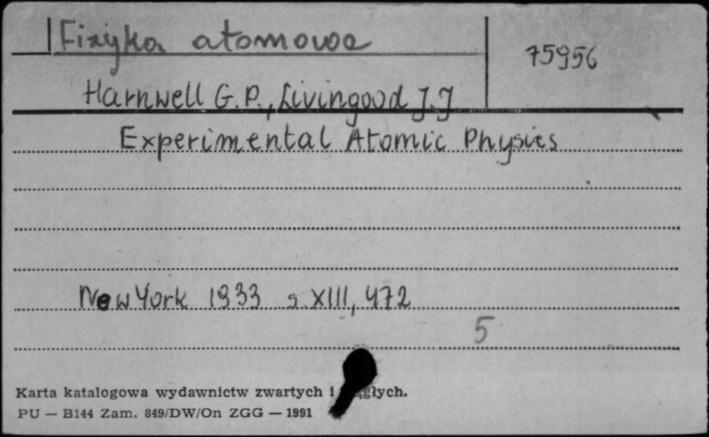 Fizyka atomowa
75956
Harnwell G.P., Livingood J.J
Experimental Atomic Physics
New York 1933 s. XIII, 472
5
Karta katalogowa wydawnictw zwartych i
PU — B144 Zam. 849/DW/On ZGG — 1991